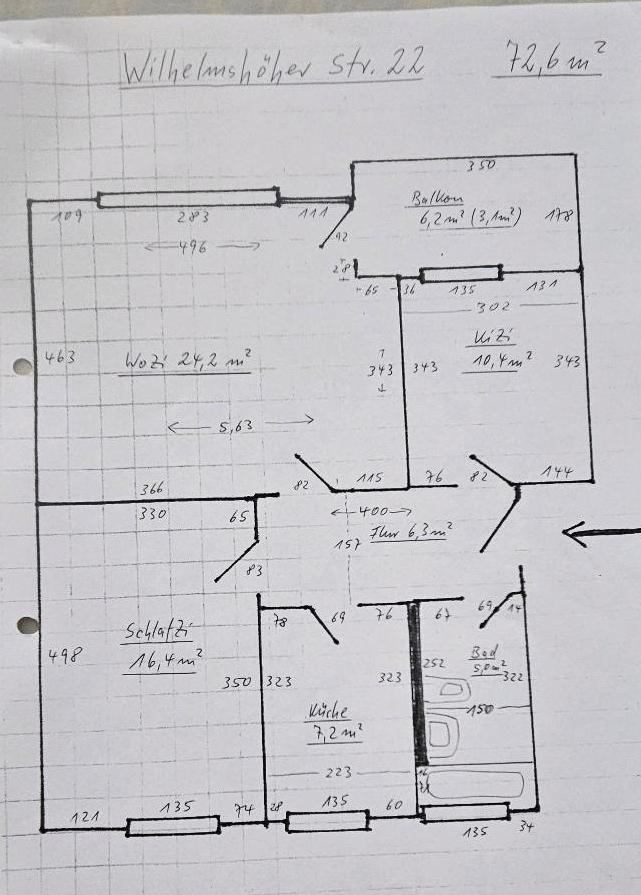 Wilhelmshöher Str. 22 72,6 m²
350
Balkon
6,2 m² (3,1m²) 178
109 283 111
92
496
28
65 36 135 131
302
KiZi
10,4 m²
463 WoZi 24,2 m² 343 343 343
5,63
366 82 115 76 82 144
330 65 400
157 Flur 6,3 m²
83
78 69 76 67 69 14
Schlafzi
16,4 m²
498 350 323 323 252 Bad
5,0 m² 322
150
Küche
7,2 m²
223
121 135 74 28 135 60 135 34